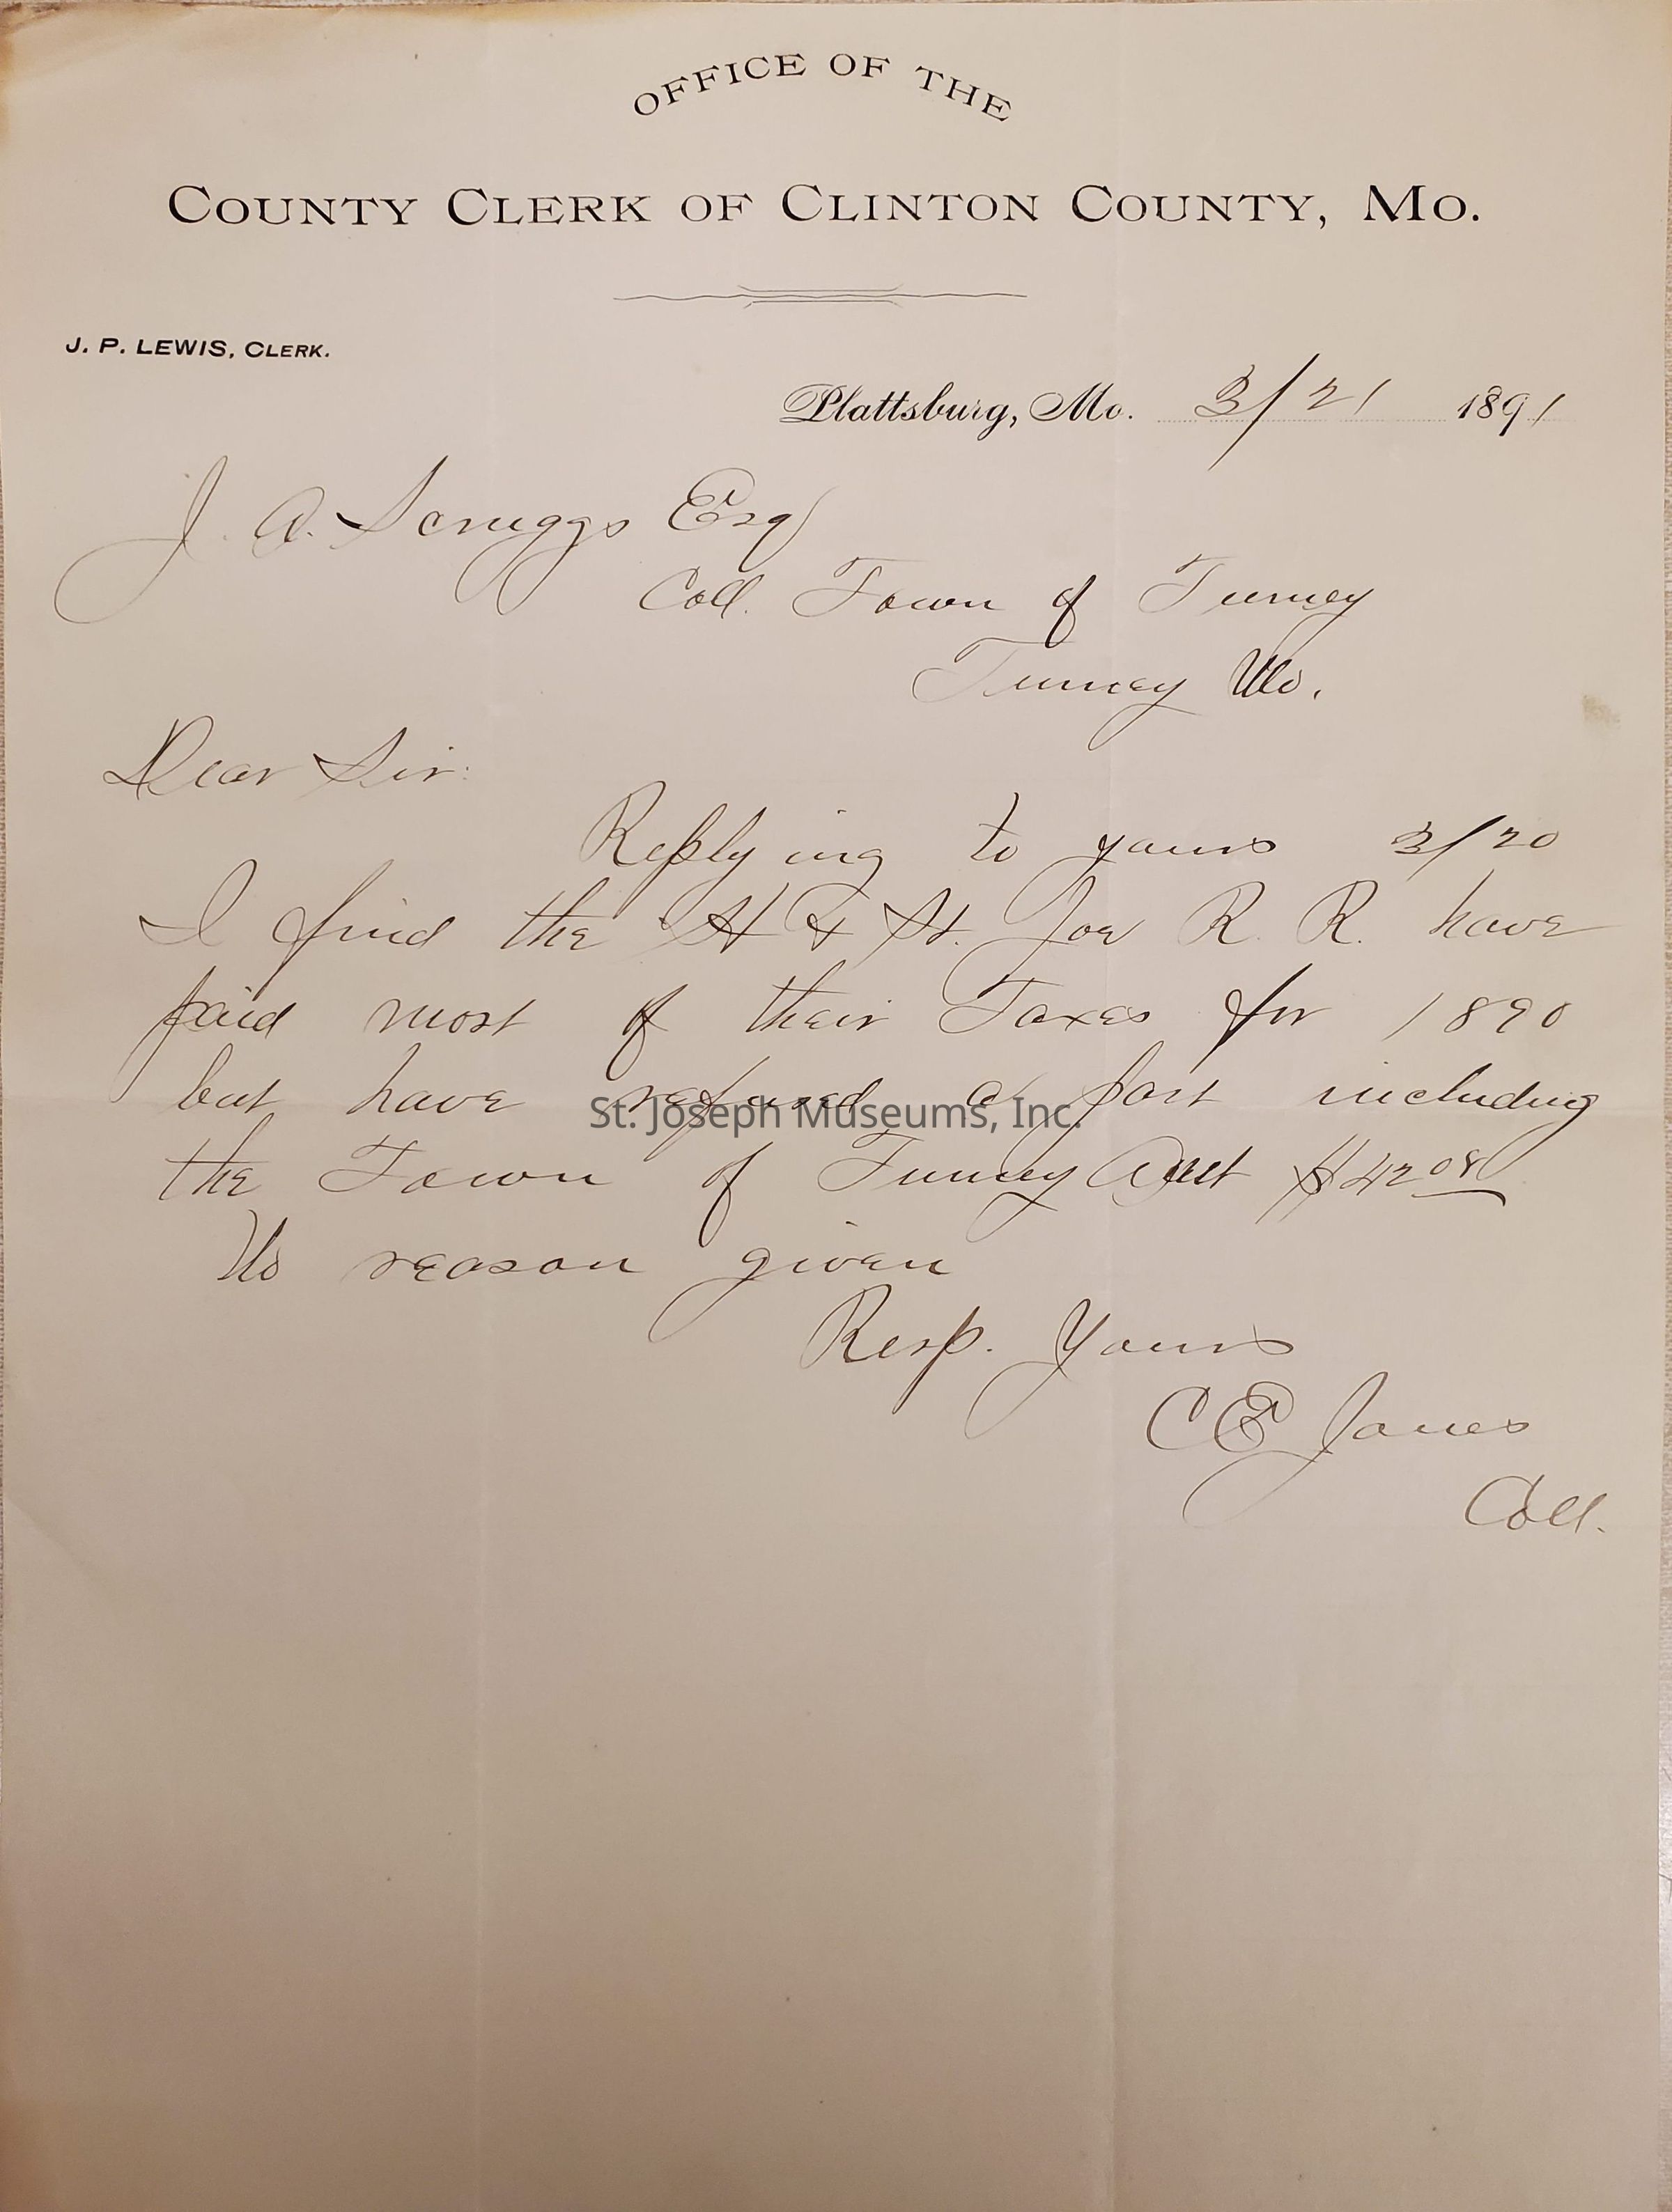 OFFICE OF THE
COUNTY CLERK OF CLINTON COUNTY, MO.
J. P. LEWIS, CLERK.
Plattsburg, Mo. 3/21 1891
J. A. Scruggs Esq
Coll. Town of Turney
Turney Mo.
Dear Sir:
Replying to yours 3/20
I find the H & St. Joe R. R. have
paid most of their Taxes for 1890
but have refused a part including
St. Joseph Museums, Inc.
the Town of Turney Amt $42.08
No reason given
Resp. Yours
C E Jones
Coll.